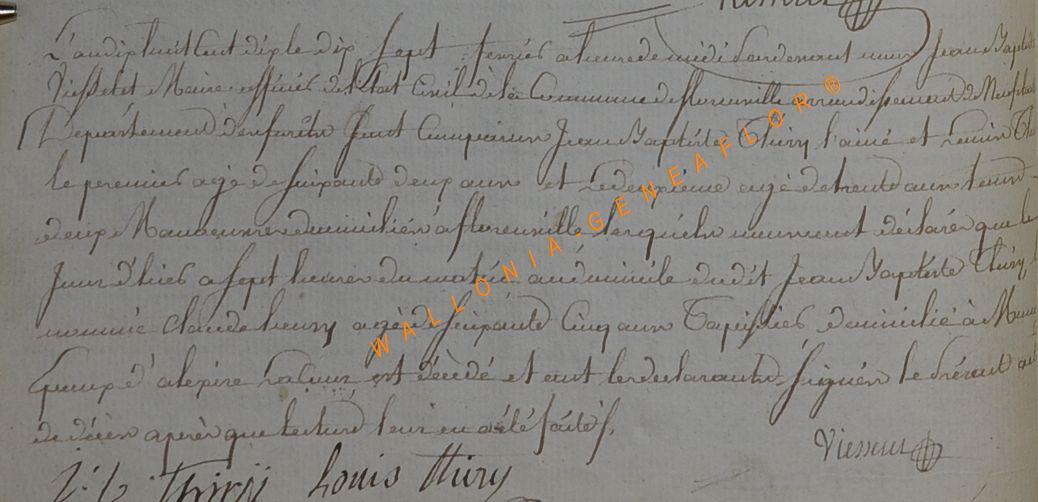 L'an dix huit cent dix le dix sept fevrier a heure de midi pardevant nous Jean Baptiste
Maire officier de l'Etat Civil de la Commune de florenville arrondissement de Neufchat
Département des forêts sont comparus Jean Baptiste Thiry l'ainé et Thi
le premier agé de soixante deux ans et le deuxieme agé de trente ans tous
deux Manoeuvres domiciliés à florenville lesquels nous ont déclarés que le
Jour d'hier a sept heures du matin au domicile dudit Jean Baptiste Thiry
nommé Claude henry agé de soixante Cinq ans Tapissier domicilié à
est décèdé et ont les declarants signés le présent
de décès aprés que lecture leur en a été faite
J: b: thirÿ Louis thiry
WALLONIA GENEAFLOR®